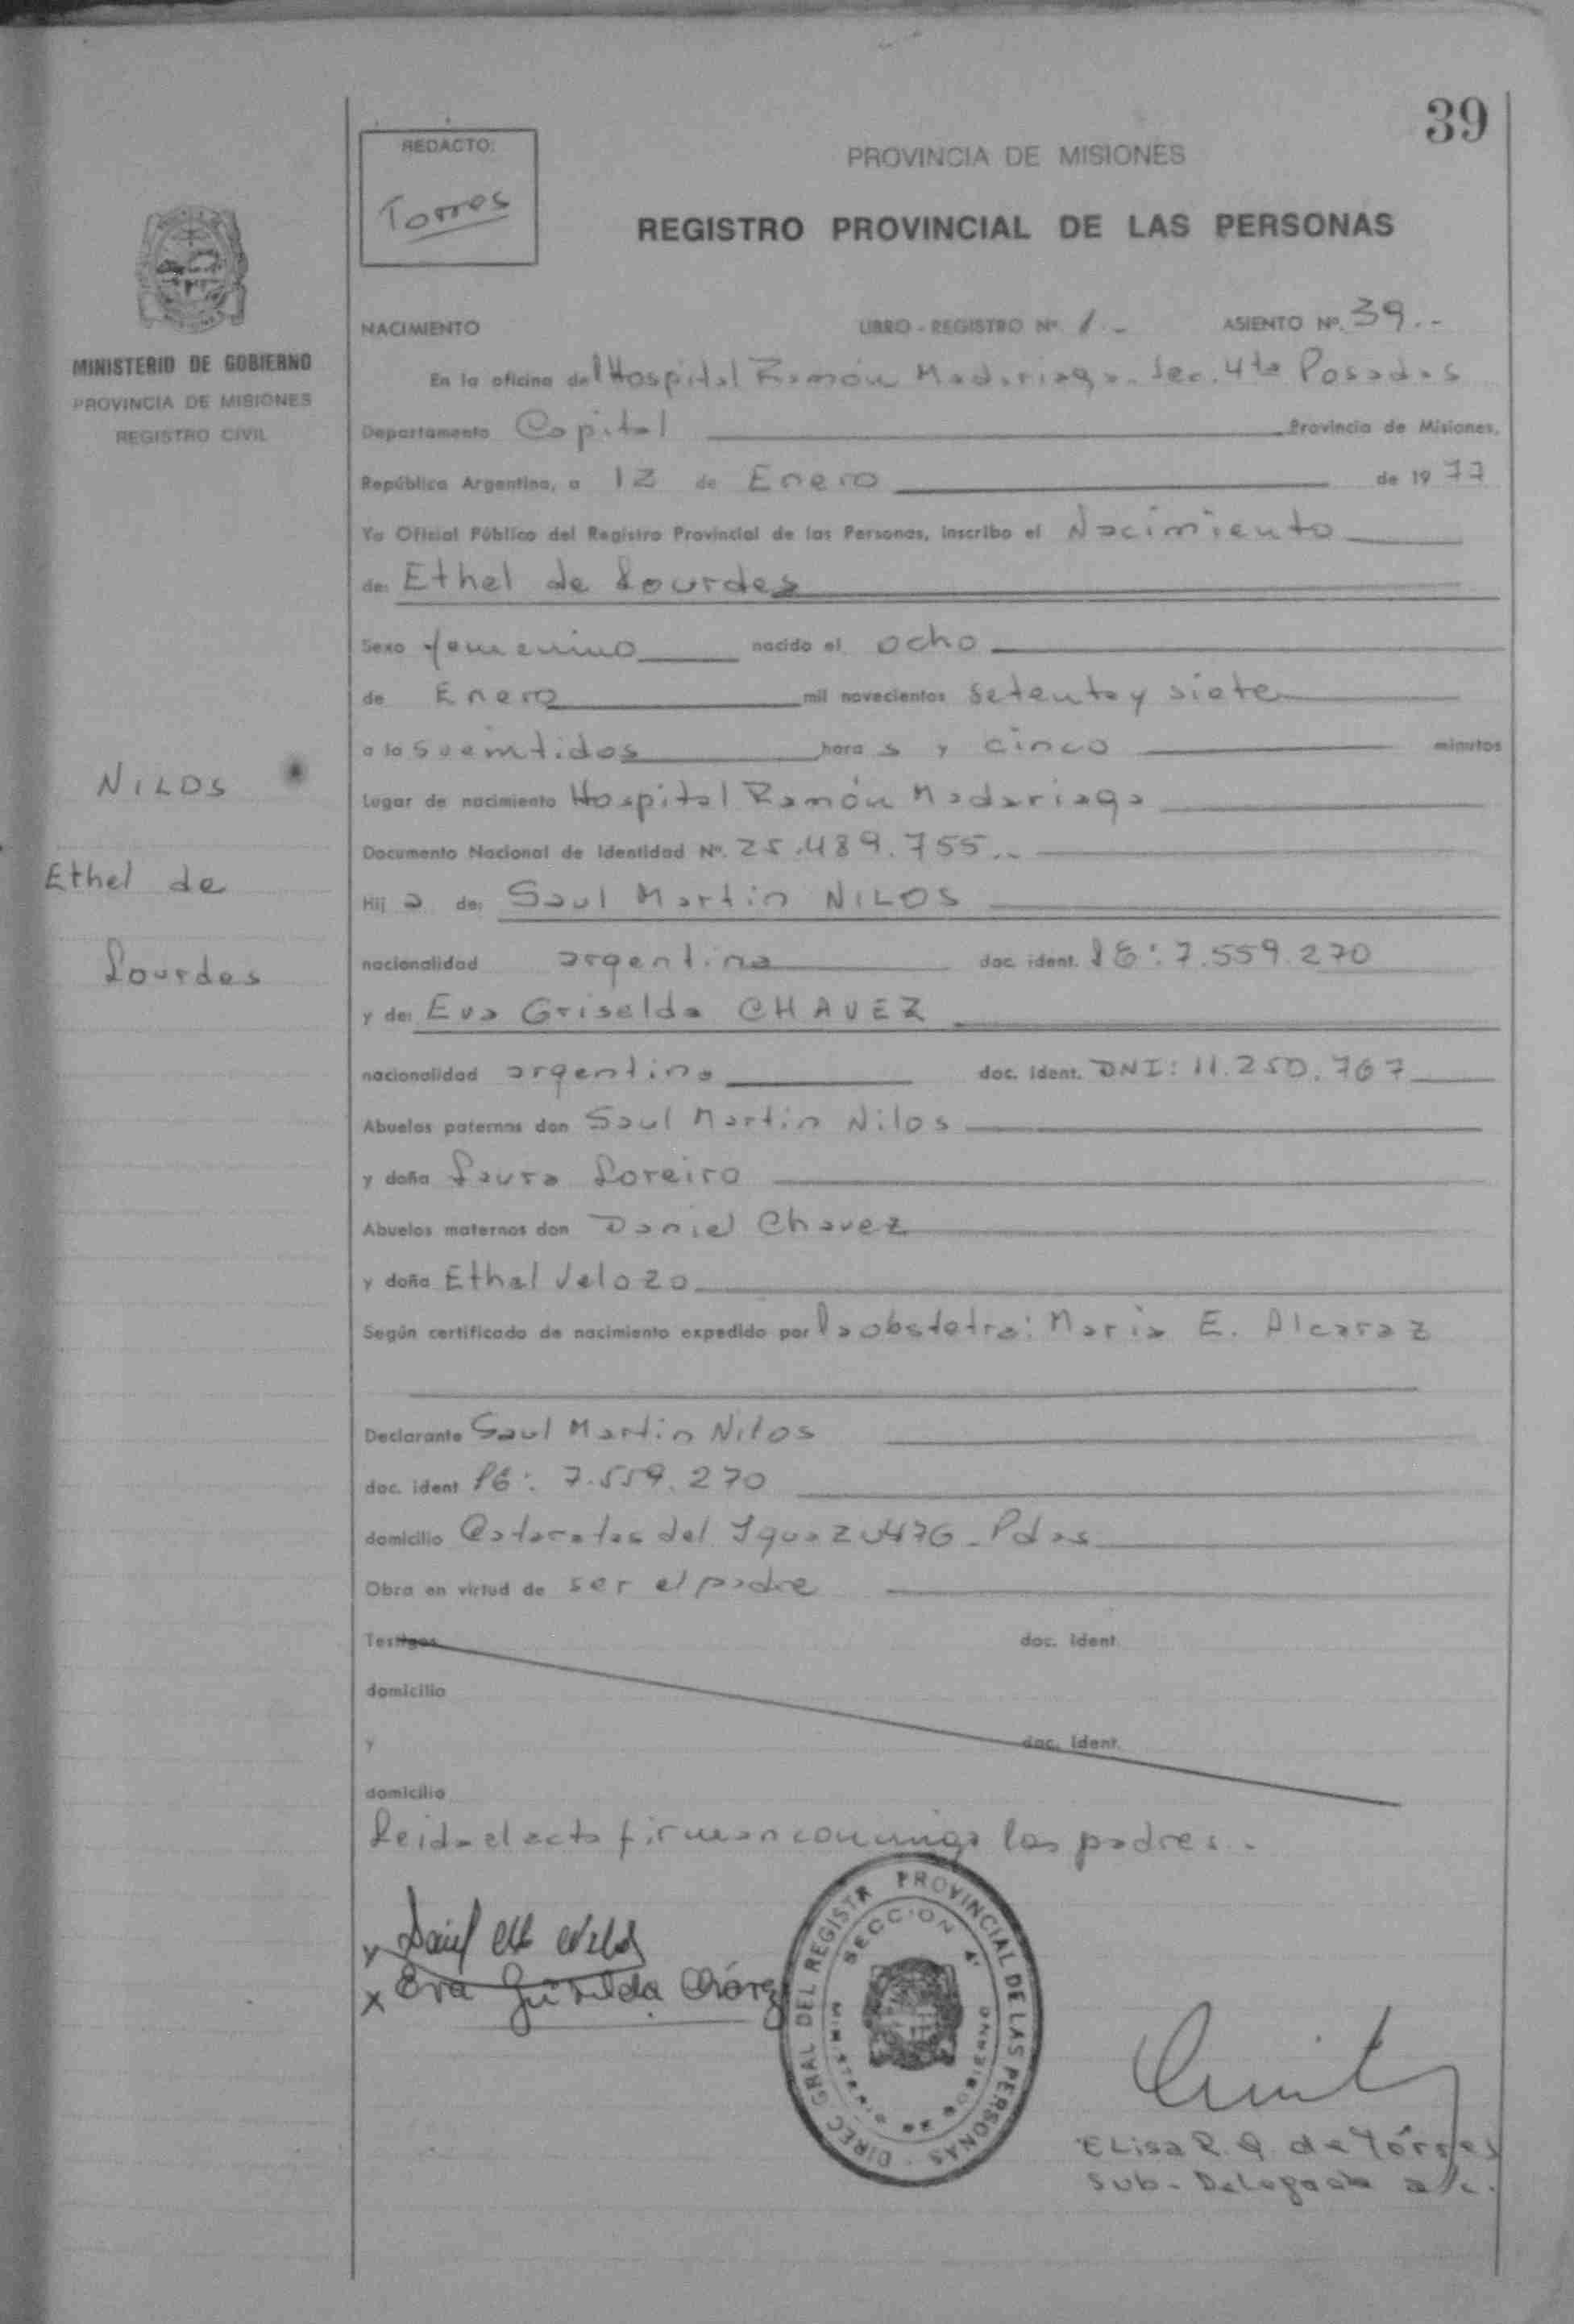 39
REDACTO:
Torres
PROVINCIA DE MISIONES
REGISTRO PROVINCIAL DE LAS PERSONAS
MINISTERIO DE GOBIERNO
PROVINCIA DE MISIONES
REGISTRO CIVIL
NACIMIENTO LIBRO - REGISTRO Nº 1.- ASIENTO Nº 39.-
En la oficina del Hospital Ramón Madariaga. Sec. 4ta Posadas
Departamento Capital Provincia de Misiones,
República Argentina, a 12 de Enero de 1977
Yo Oficial Público del Registro Provincial de las Personas, inscribo el Nacimiento
de: Ethel de Lourdes
Sexo femenino nacido el ocho
de Enero mil novecientos setenta y siete
a las veintidos horas y cinco minutos
Lugar de nacimiento Hospital Ramón Madariaga
Documento Nacional de Identidad Nº. 25.489.755.-
Hija de: Saul Martin NILOS
nacionalidad argentina doc. ident. LE: 7.559.270
y de: Eva Griselda CHAVEZ
nacionalidad argentina doc. ident. DNI: 11.250.767
Abuelos paternos don Saul Martin Nilos
y doña Laura Loreiro
Abuelos maternos don Daniel Chavez
y doña Ethel Velozo
Según certificado de nacimiento expedido por la obstetra: Maria E. Alcaraz
Declarante Saul Martin Nilos
doc. ident LE: 7.559.270
domicilio Cataratas del Iguazu 476 - Pdas
Obra en virtud de ser el padre
Testigos doc. ident.
domicilio
y doc. ident.
domicilio
Leida el acta firman conmigo los padres.-
NILOS
Ethel de
Lourdes
x Saúl M Nilos
x Eva Griselda Chávez
DIREC GRAL DEL REGISTR PROVINCIAL DE LAS PERSONAS
SECCION 4ª
MINISTERIO DE GOBIERNO
Elisa R. Q. de Tórres
Sub-Delegada a/c.